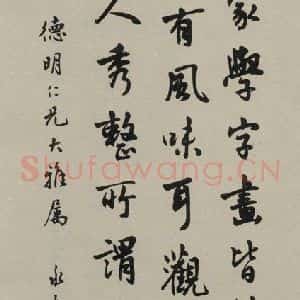 家學字畫皆
有風味耳觀
人秀整所謂
德明仁兄大雅屬
永
Shufawang.CN